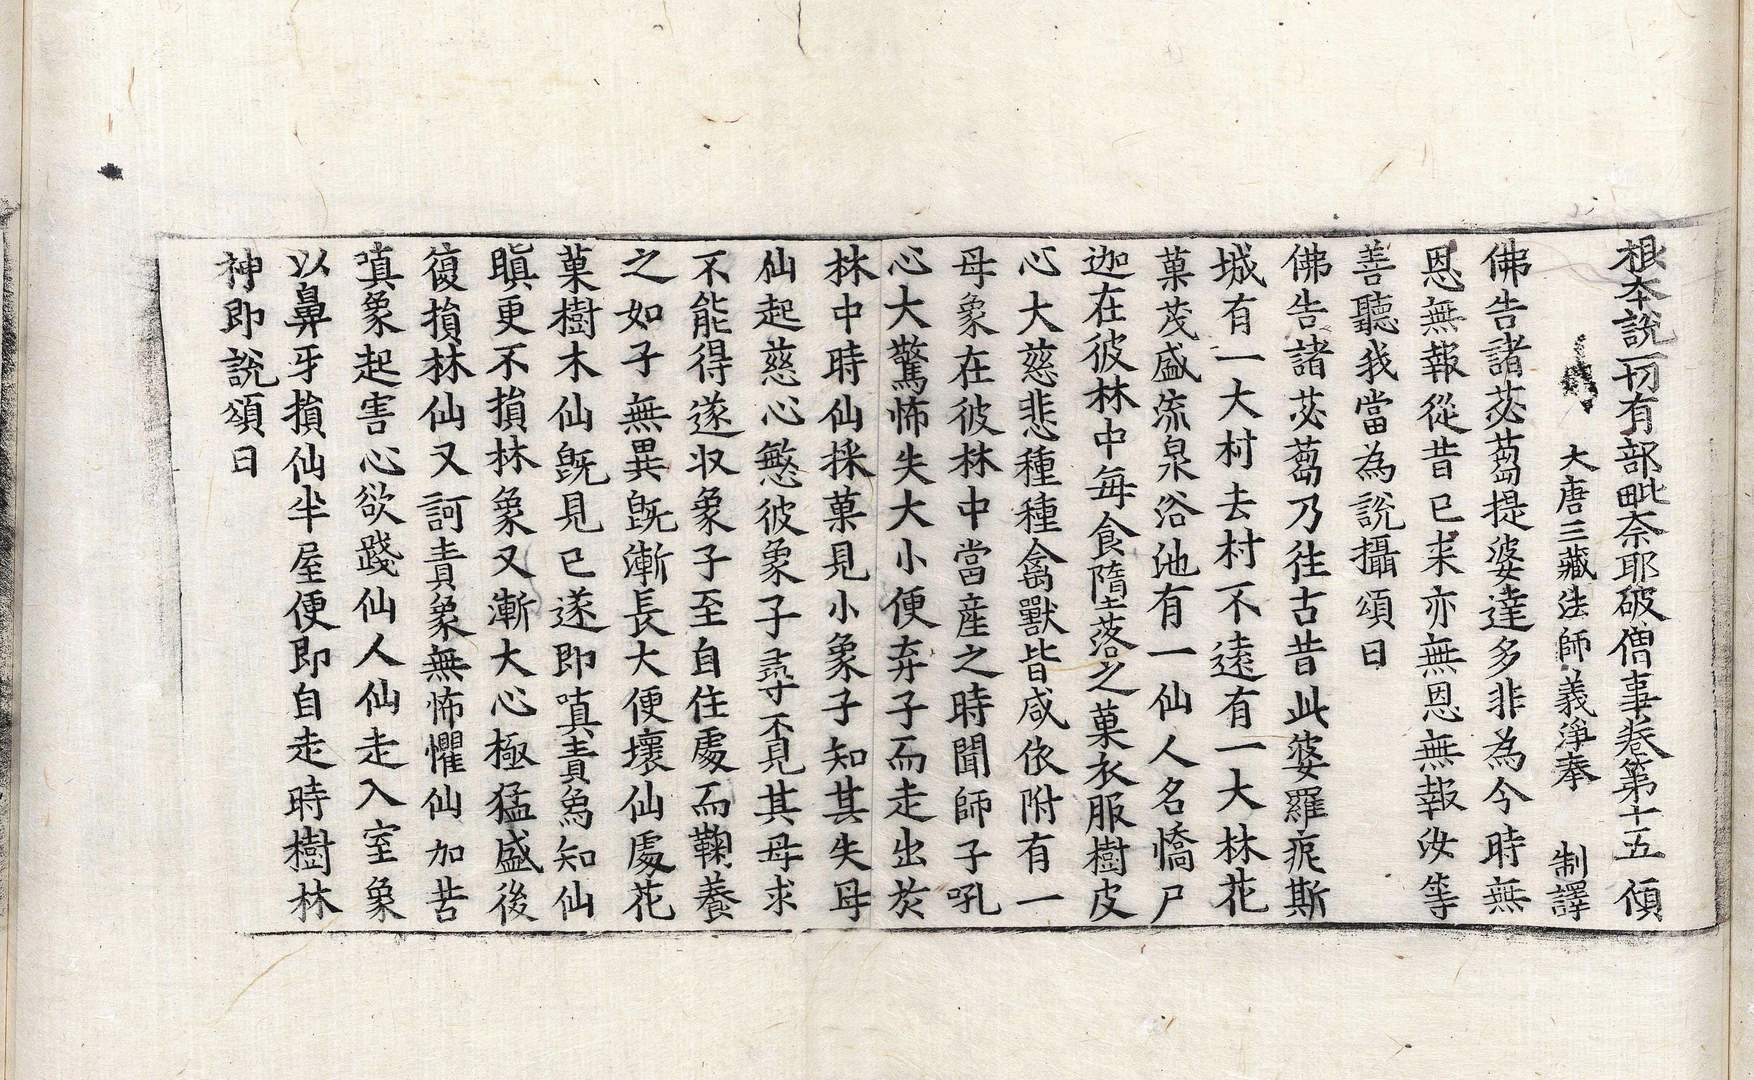 根本說一切有部毗奈耶破僧事卷第十五　傾
大唐三藏法師義淨奉　制譯
佛告諸苾蒭提婆達多非為今時無
恩無報從昔已来亦無恩無報汝等
善聽我當為說攝頌曰
佛告諸苾蒭乃往古昔此婆羅痆斯
城有一大村去村不遠有一大林花
菓茂盛流泉浴池有一仙人名憍尸
迦在彼林中每食墮落之菓衣服樹皮
心大慈悲種種禽獸皆咸依附有一
母象在彼林中當産之時聞師子吼
心大驚怖失大小便弃子而走出於
林中時仙採菓見小象子知其失母
仙起慈心慜彼象子尋不見其母求
不能得遂収象子至自住處而鞠養
之如子無異旣漸長大便壞仙處花
菓樹木仙旣見已遂即嗔責為知仙
瞋更不損林象又漸大心極猛盛後
復損林仙又訶責象無怖懼仙加苦
嗔象起害心欲踐仙人仙走入室象
以鼻牙損仙半屋便即自走時樹林
神即說頌曰